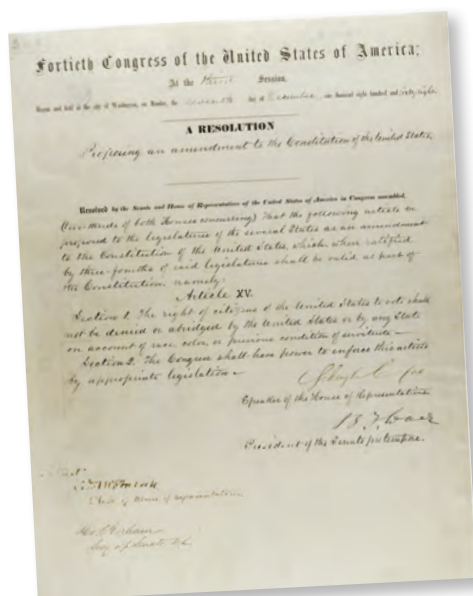 Fortieth Congress of the United States of America;
At the third Session,
Begun and held at the city of Washington, on Monday, the seventh day of December, one thousand eight hundred and sixty-eight.
A RESOLUTION
Proposing an amendment to the Constitution of the United States.
Resolved by the Senate and House of Representatives of the United States of America in Congress assembled,
(two-thirds of both Houses concurring) That the following article be
proposed to the legislatures of the several States as an amendment
to the Constitution of the United States, which, when ratified
by three-fourths of said legislatures shall be valid as part of
the Constitution, namely:
Article XV.
Section 1. The right of citizens of the United States to vote shall
not be denied or abridged by the United States or by any State
on account of race, color, or previous condition of servitude—
Section 2. The Congress shall have power to enforce this article
by appropriate legislation—
Speaker of the House of Representatives.
President of the Senate pro tempore.
Attest
Clerk of House of Representatives